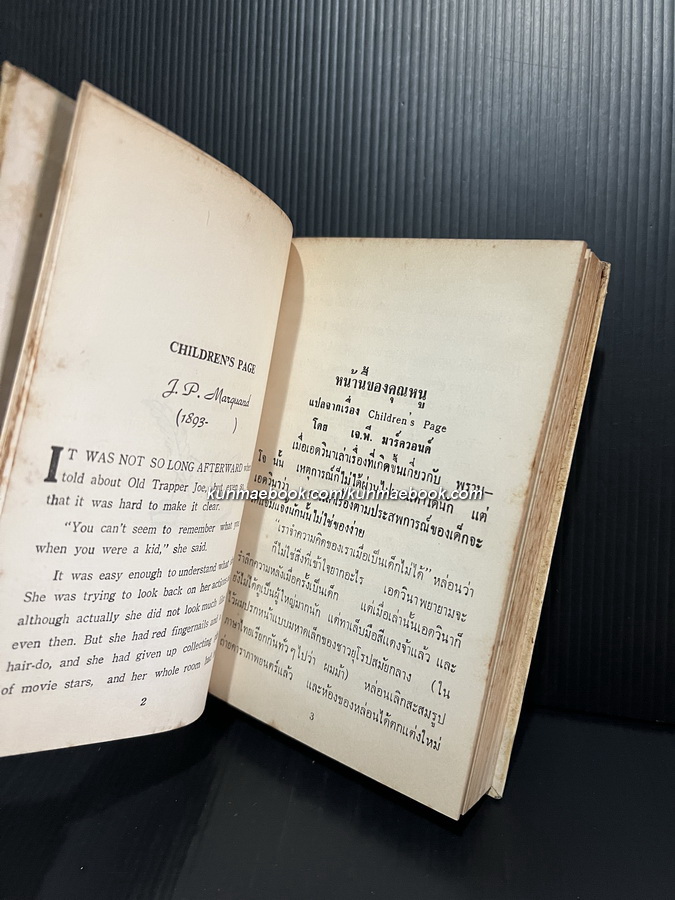 CHILDREN'S PAGE
J. P. Marquand
(1893- )
IT WAS NOT SO LONG AFTERWARD
told about Old Trapper Joe, but even
that it was hard to make it clear.
"You can't seem to remember what
when you were a kid," she said.
It was easy enough to understand
She was trying to look back on her
although actually she did not look much
even then. But she had red fingernails and
hair-do, and she had given up collecting
of movie stars, and her whole room
2
หน้านี้ของคุณหนู
แปลจากเรื่อง Children's Page
โดย เจ.พี. มาร์ควอนด์
เมื่อเอดวินาเล่าเรื่องที่เกิดขึ้นเกี่ยวกับ พราน—
โจ นั้น เหตุการณ์ก็ไม่ได้ผ่านไป แต่
kunmaebook.com/kunmaebook.com
เอดวินาว่า เล่าเรื่องตามประสพการณ์ของเด็กจะ
ให้แจ่มแจ้งนักนั้นไม่ใช่ของง่าย
"เราจำความคิดของเราเมื่อเป็นเด็กไม่ได้" หล่อนว่า
ก็ไม่ใช่สิ่งที่เข้าใจยากอะไร เอดวินาพยายามจะ
รำลึกความหลังเมื่อครั้งเป็นเด็ก แต่เมื่อเล่านั้นเอดวินาก็
ยังไม่ได้ดูเป็นผู้ใหญ่มากนัก แต่ทาเล็บมือสีแดงจ้าแล้ว และ
ไว้ผมปรกหน้าแบบมหาดเล็กของชาวยุโรปสมัยกลาง (ใน
ภาษาไทยเรียกกันทั่วๆไปว่า ผมม้า) หล่อนเลิกสะสมรูป
ถ่ายดาราภาพยนตร์แล้ว และห้องของหล่อนได้ตกแต่งใหม่
3